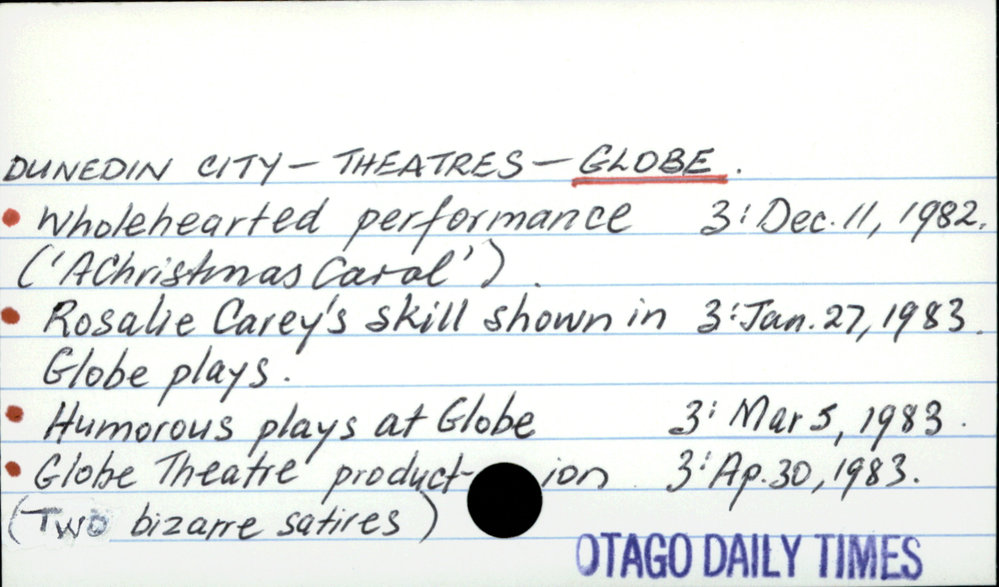 DUNEDIN CITY - THEATRES - GLOBE.
• Wholehearted performance 3: Dec. 11, 1982.
('A Christmas Carol').
• Rosalie Carey's skill shown in 3: Jan. 27, 1983.
Globe plays.
• Humorous plays at Globe 3: Mar 5, 1983.
• Globe Theatre product-ion 3: Ap. 30, 1983.
(TWO bizarre satires)
OTAGO DAILY TIMES